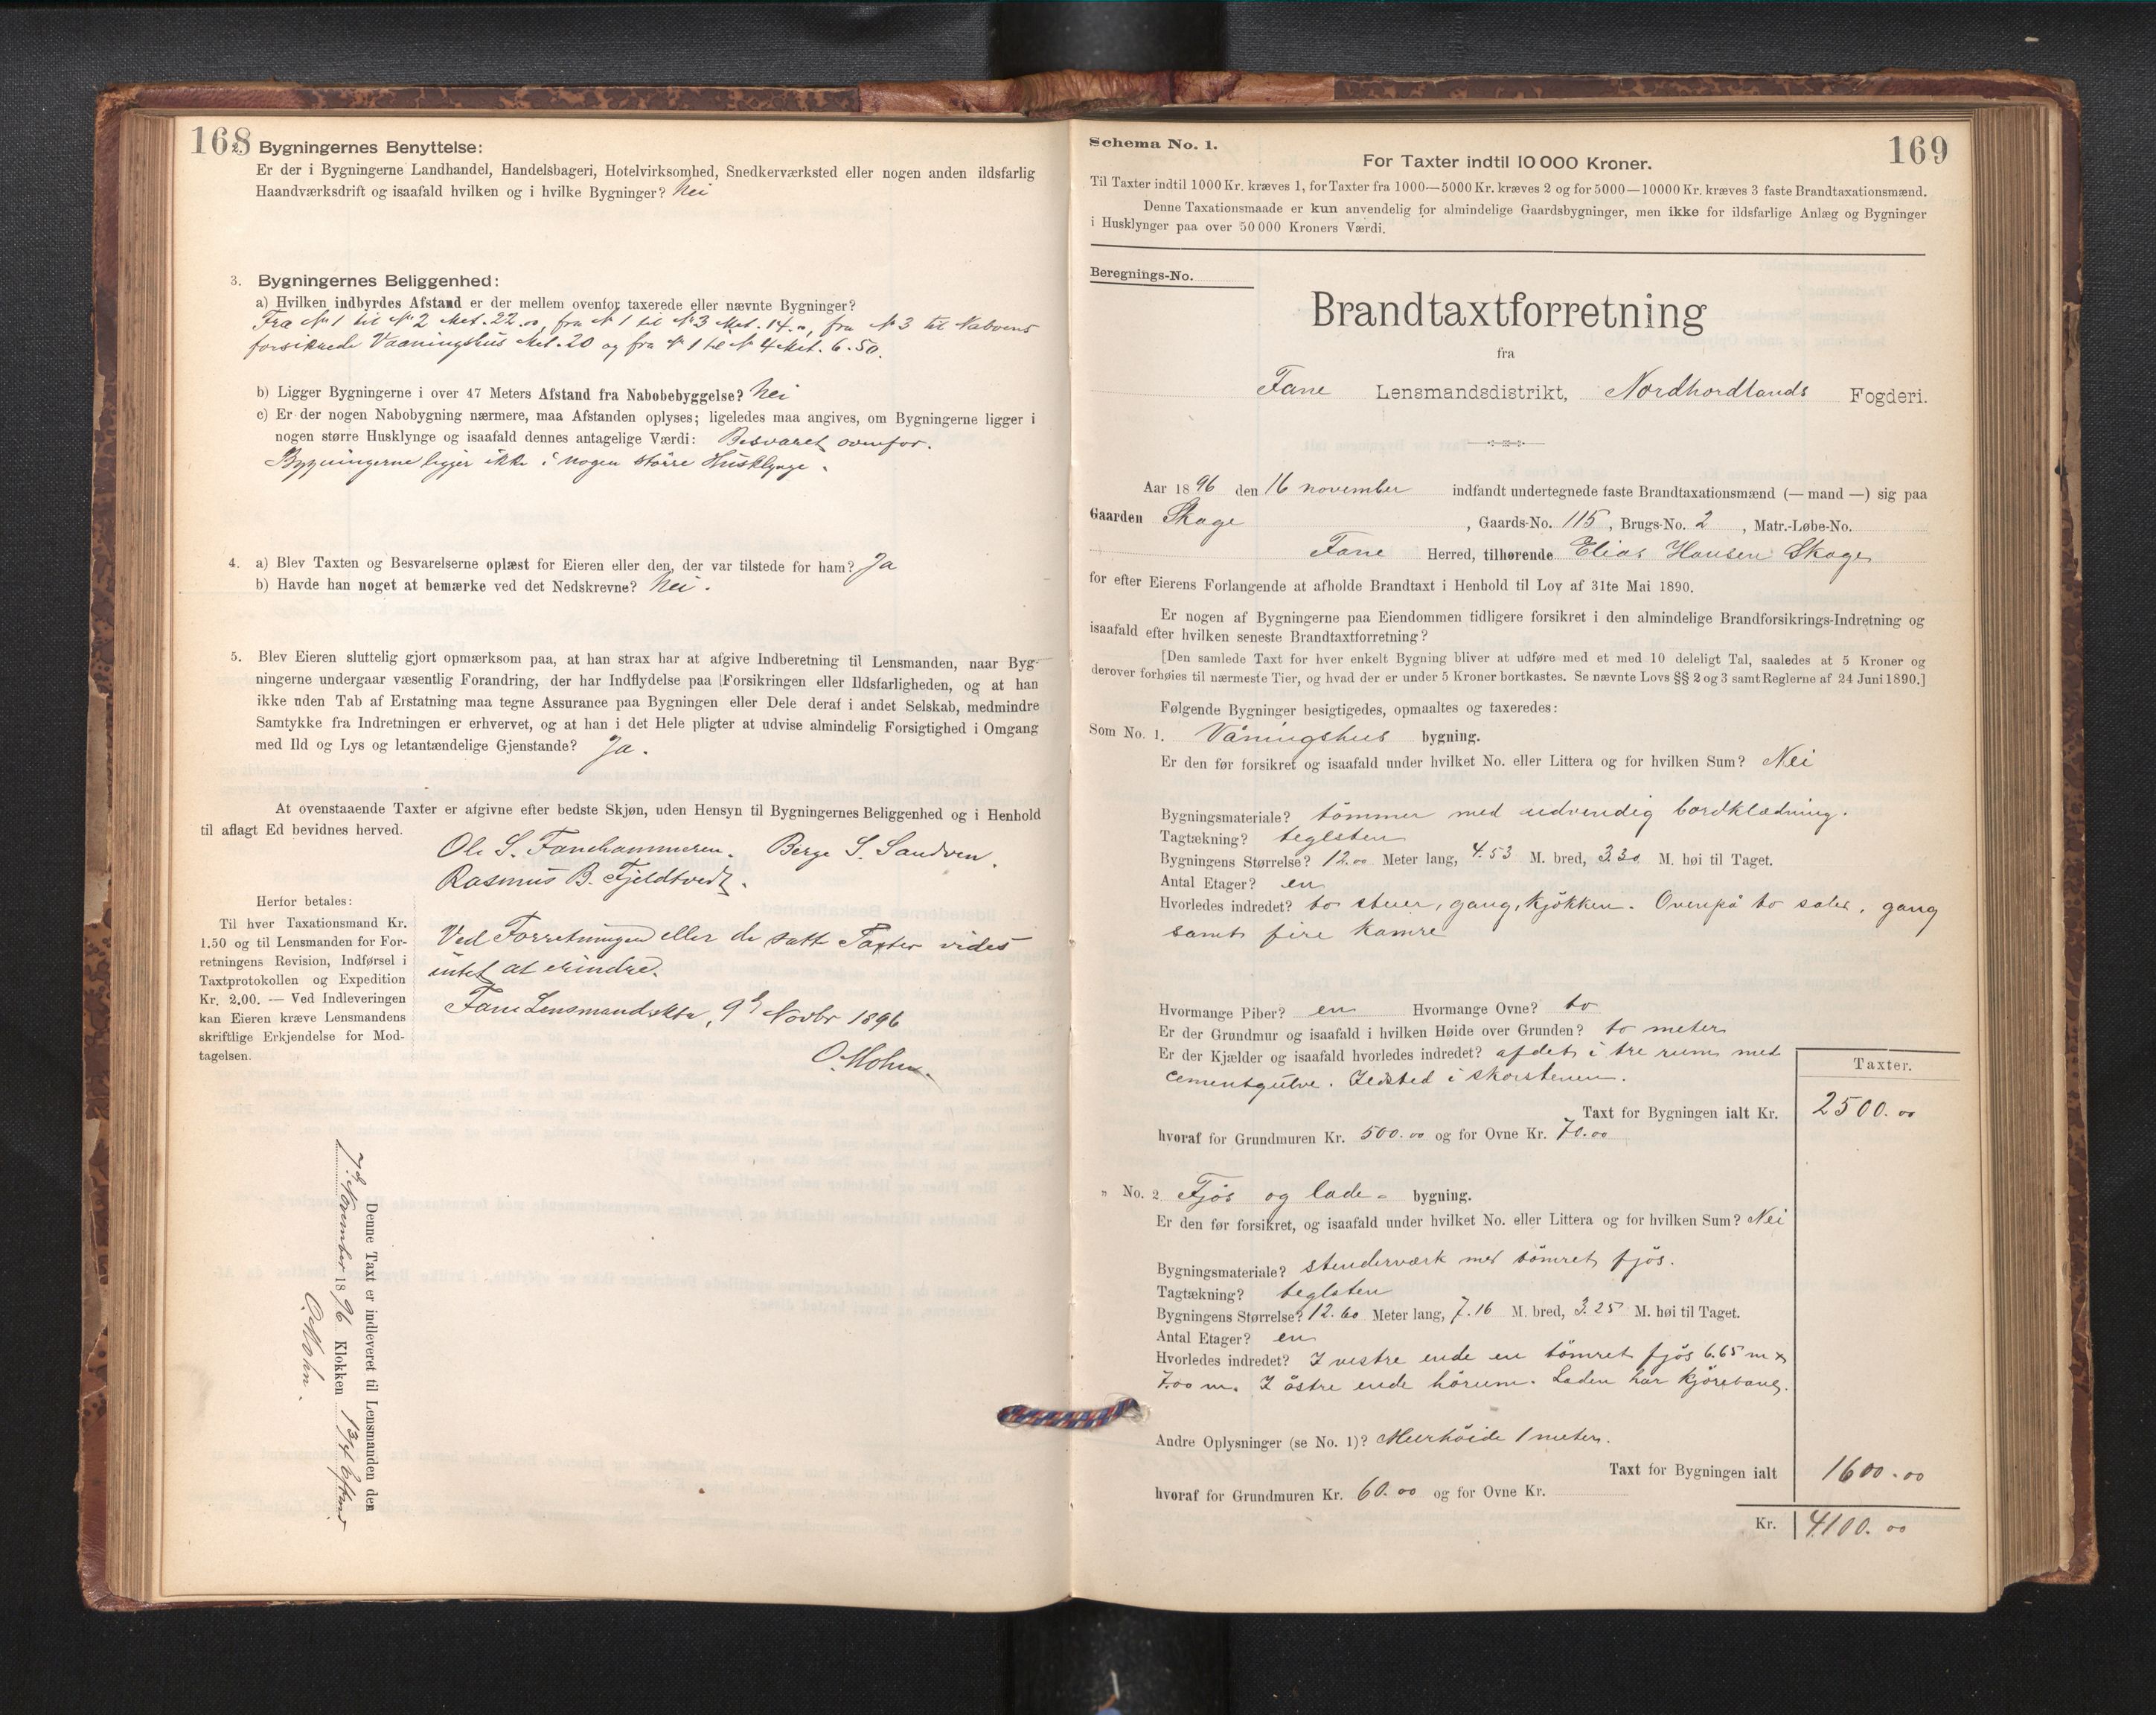 168
2. Bygningernes Benyttelse:
Er der i Bygningerne Landhandel, Handelsbageri, Hotelvirksomhed, Snedkerværksted eller nogen anden ildsfarlig
Haandværksdrift og isaafald hvilken og i hvilke Bygninger? Nei
3. Bygningernes Beliggenhed:
a) Hvilken indbyrdes Afstand er der mellem ovenfor taxerede eller nævnte Bygninger?
Fra No 1 til No 2 Met. 22.00, fra No 1 til No 3 Met. 14.00, fra No 3 til Naboens
forsikrede Vaaningshus Met. 20 og fra No 1 til No 4 Met. 6.50.
b) Ligger Bygningerne i over 47 Meters Afstand fra Nabobebyggelse? Nei
c) Er der nogen Nabobygning nærmere, maa Afstanden oplyses; ligeledes maa angives, om Bygningerne ligger i
nogen større Husklynge og isaafald dennes antagelige Værdi: Besvaret ovenfor.
Bygningerne ligger ikke i nogen större Husklynge.
4. a) Blev Taxten og Besvarelserne oplæst for Eieren eller den, der var tilstede for ham? Ja
b) Havde han noget at bemærke ved det Nedskrevne? Nei.
5. Blev Eieren sluttelig gjort opmærksom paa, at han strax har at afgive Indberetning til Lensmanden, naar Byg-
ningerne undergaar væsentlig Forandring, der har Indflydelse paa Forsikringen eller Ildsfarligheden, og at han
ikke uden Tab af Erstatning maa tegne Assurance paa Bygningen eller Dele deraf i andet Selskab, medmindre
Samtykke fra Indretningen er erhvervet, og at han i det Hele pligter at udvise almindelig Forsigtighed i Omgang
med Ild og Lys og letantændelige Gjenstande? Ja.
At ovenstaaende Taxter er afgivne efter bedste Skjøn, uden Hensyn til Bygningernes Beliggenhed og i Henhold
til aflagt Ed bevidnes herved.
Ole S. Fanehammeren. Berge S. Sandven.
Rasmus B. Fjeldtvedt.
Herfor betales:
Til hver Taxationsmand Kr.
1,50 og til Lensmanden for For-
retningens Revision, Indførsel i
Taxtprotokollen og Expedition
Kr. 2,00. — Ved Indleveringen
kan Eieren kræve Lensmandens
skriftlige Erkjendelse for Mod-
tagelsen.
Ved Forretningen eller de satte Taxter vides
intet at erindre.
Fane Lensmandsktr, 9de Novbr 1896
O. Mohn.
Denne Taxt er indleveret til Lensmanden den
7de November 1896 Klokken 1 3/4 Efterm
O. Mohn.
Schema No. 1.
169
For Taxter indtil 10 000 Kroner.
Til Taxter indtil 1000 Kr. kræves 1, for Taxter fra 1000—5000 Kr. kræves 2 og for 5000—10000 Kr. kræves 3 faste Brandtaxationsmænd.
Denne Taxationsmaade er kun anvendelig for almindelige Gaardsbygninger, men ikke for ildsfarlige Anlæg og Bygninger
i Husklynger paa over 50 000 Kroners Værdi.
Beregnings-No.
Brandtaxtforretning
fra
Fane Lensmandsdistrikt, Nordhordlands Fogderi.
Aar 1896 den 16 november indfandt undertegnede faste Brandtaxationsmænd (— mand —) sig paa
Gaarden Skage, Gaards-No. 115, Brugs-No. 2, Matr.-Løbe-No.
Fane Herred, tilhørende Elias Hansen Skage
for efter Eierens Forlangende at afholde Brandtaxt i Henhold til Lov af 31te Mai 1890.
Er nogen af Bygningerne paa Eiendommen tidligere forsikret i den almindelige Brandforsikrings-Indretning og
isaafald efter hvilken seneste Brandtaxtforretning?
[Den samlede Taxt for hver enkelt Bygning bliver at udføre med et med 10 deleligt Tal, saaledes at 5 Kroner og
derover forhøies til nærmeste Tier, og hvad der er under 5 Kroner bortkastes. Se nævnte Lovs §§ 2 og 3 samt Reglerne af 24 Juni 1890.]
Følgende Bygninger besigtigedes, opmaaltes og taxeredes:
Som No. 1. Våningshus bygning.
Er den før forsikret og isaafald under hvilket No. eller Littera og for hvilken Sum? Nei
Bygningsmateriale? tömmer med udvendig bordklædning.
Tagtækning? teglsten
Bygningens Størrelse? 12.00 Meter lang, 4.53 M. bred, 3.30 M. høi til Taget.
Antal Etager? en
Hvorledes indredet? to stuer, gang, kjökken. Ovenpå to saler, gang
samt fire kamre
Hvormange Piber? en Hvormange Ovne? to
Er der Grundmur og isaafald i hvilken Høide over Grunden? to meter
Er der Kjælder og isaafald hvorledes indredet? afdelt i tre rum med
cementgulve. Ildsted i skorstenen.
Taxter.
Taxt for Bygningen ialt Kr. 2500.00
hvoraf for Grundmuren Kr. 500.00 og for Ovne Kr. 70.00
„ No. 2 Fjös og lade- bygning.
Er den før forsikret, og isaafald under hvilket No. eller Littera og for hvilken Sum? Nei
Bygningsmateriale? stenderværk med tömret fjös.
Tagtækning? teglsten
Bygningens Størrelse? 12.60 Meter lang, 7.16 M. bred, 3.25 M. høi til Taget.
Antal Etager? en
Hvorledes indredet? I vestre ende en tömret fjös 6.65 m x
7.00 m. I östre ende hörum. Laden har kjörebane.
Andre Oplysninger (se No. 1)? Murhöide 1 meter.
Taxt for Bygningen ialt 1600.00
hvoraf for Grundmuren Kr. 60.00 og for Ovne Kr.
Kr. 4100.00